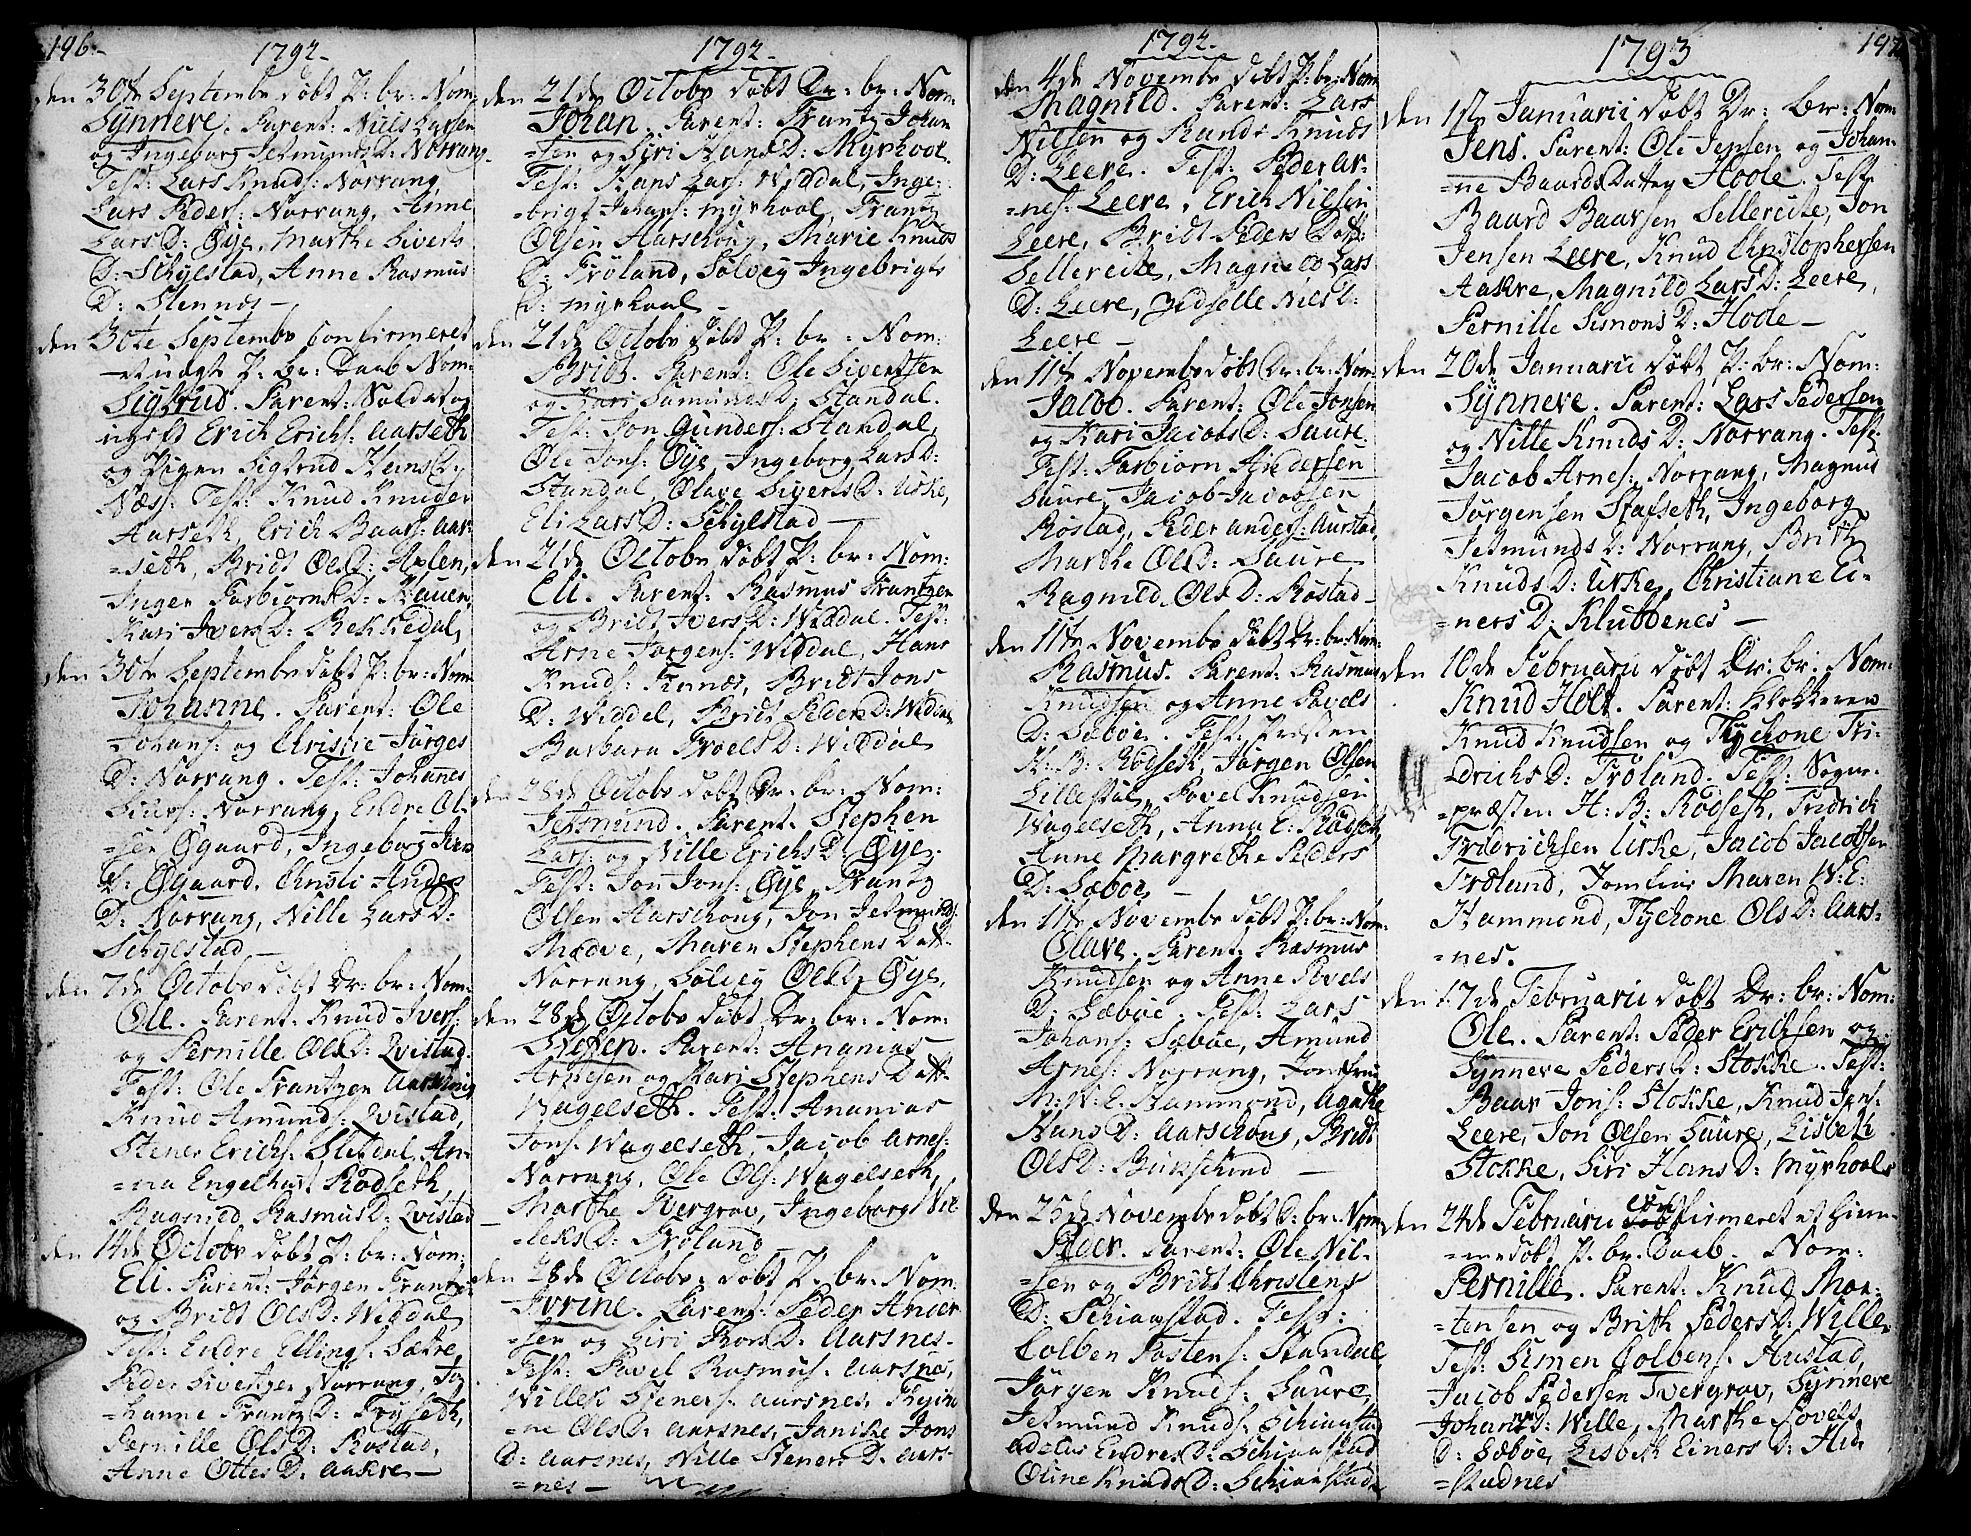 196.
1792.
den 30te Septembr döbt P: br: Nom:
Synneve. Parent: Niels Larsen
og Ingeborg Jetmunds D: Norrang.
Test: Lars Knuds: Norrang,
Lars Peders: Norrang, Anne
Lars D: Øye, Marthe Siverts
D: Schylstad, Anne Rasmus
D: Stennes —
den 30te Septembr confirmeret
P: br: Daab Nom:
Sigtrud. Parent: Soldat og
ugift Erich Erichs: Aarseth
og Pigen Sigtrud Hans D:
Næss. Test: Knud Knuds:
Aarseth, Erich Baars: Aar-
=seth, Bridt Ols D: Aalen,
Inger Torbiørns D: Hauen,
Kari Ivers D: Rekkedal,
den 30te Septembr döbt P: br: Nom:
Johanne. Parent: Ole
Johans: og Christie Jørgens
D: Norrang. Test: Johannes
Siurs: Norrang, Endre Ol-
=sen Øgaard, Ingeborg
D: Øgaard. Christi Anders
D: Norrang, Nille Lars D:
Schylstad —
den 7de Octobr döbt Dr: br: Nom:
Ole. Parent: Knud Ivers:
og Pernille Ols D: Qvistad.
Test: Ole Frantzen Aarschoug
Knud Amunds: Qvistad,
Stener Erichs: Sletdal, An-
=na Engelhart Rødseth,
Ragnild Rasmus D: Qvistad —
den 14de Octobr döbt P: br: Nom:
Eli. Parent: Jørgen Frantz:
og Bridt Ols D: Widdal,
Test: Endre Ellings: Sætre,
Peder Sivertzen Norrang, Jo-
=hanne Frantz D: Tryseth,
Pernille Ols D: Rostad,
Anne Ottes D: Aakre —
1792.
den 21de Octobr döbt Dr: br: Nom:
Johan. Parent: Frantz Johan
=sen og Siri Hans D: Myrhool.
Test: Hans Lars: Widdal, Inge-
=brigt Johans: Myrhool, Frantz
Olsen Aarschoug, Marie Knuds
D: Froland, Solvey Ingebrigts
D: Myrhool —
den 21de Octobr döbt P: br: Nom:
Bridt. Parent: Ole Sivertsen
og Kari Samunds D: Standal.
Test: Jon Gunders: Standal,
Ole Jons: Øye, Ingeborg Lars D:
Standal, Olave Siverts D: Urke,
Eli Lars D: Schylstad —
den 21de Octobr döbt P: br: Nom:
Eli. Parent: Rasmus Frantzen
og Bridt Ivers D: Widdal. Test:
Arne Jørgens: Widdal, Hans
Knuds: Fennes, Bridt Jons
D: Widdal, Bridt Peders D: Widdal
Barbara Troels D: Widdal
den 28de Octobr döbt Dr: br: Nom:
Jetmund. Parent: Stephen
Lars: og Nille Erichs D: Øye.
Test: Jon Jons: Øye, Frantz
Olsen Aarschoug, Jon Jetmunds:
Mødve, Maren Stephens Datt:
Norrang, Solvey Ols D: Øye,
den 28de Octobr döbt Dr: br: Nom:
Steffen. Parent: Ananias
Arnesen og Kari Stephens Datt:
Wagelseth. Test: Ananias
Jons: Wagelseth, Jacob Arnes:
Norrang, Ole Ols: Wagelseth,
Marthe Tvergrov, Ingeborg Wil-
=leks D: Froland —
den 28de Octobr: döbt P: br: Nom:
Ivrine. Parent: Peder Ander
=sen og Siri Thores D: Aarsnes.
Test: Povel Rasmus: Aarsnes,
Willek Steners: Aarsnes, Thycho
=ne Ols D: Aarsnes, Janike Jons
D: Aarsnes, Nille Steners D: Aars-
=nes —
1792.
den 4de Novembr döbt P: br: Nom:
Magnild. Parent: Lars
Nilsen og Randi Knuds
D: Leere. Test: Peder Ar-
=nes: Leere, Erich Nilsen
Leere, Bridt Peders Datt:
Sellereite, Magnild Lars
D: Leere, Zidselle Niels D:
Leere —
den 11te Novembr döbt Dr: br: Nom:
Jacob. Parent: Ole Jonsen
og Kari Jacobs D: Saure.
Test: Torbiørn Andersen
Saure, Jacob Jacobsen
Rostad, Peder Anders: Aurstad,
Marthe Ols D: Saure,
Ragnild Ols D: Rostad —
den 11te Novembr döbt Dr: br: Nom:
Rasmus. Parent: Rasmus
Knudsen og Anne Povels
D: Sæbøe. Test: Præsten
H: B: Rødseth, Jørgen Olsen
Lillestøl, Povel Knudsen
Wagelseth, Anna E: Rødseth
Anne Margrethe Peders
D: Sæbøe —
den 11te Novembr döbt P: br: Nom:
Olave. Parent: Rasmus
Knudsen og Anne Povels
D: Sæbøe. Test: Lars
Johans: Sæbøe, Amund
Arnes: Norrang, Jomfrue
M: W: E: Hammond, Agathe
Hans D: Aarschoug, Bridt
Ols D: Bunschend —
den 25de Novembr döbt D: br: Nom:
Peder. Parent: Ole Nil-
=sen og Bridt Christens
D: Schiaastad. Test:
Colben Tostens: Standal,
Jørgen Knuds: Saure,
Jetmund Knuds: Schiaastad
Adelus Endres D: Schiaastad
Oline Knuds D: Schiaastad
1793
197
den 1te Januarii döbt Dr: br: Nom:
Jens. Parent: Ole Jensen og Johan-
=ne Baards Datter Hoole. Test:
Baard Baarsen Sellereite, Jon
Jensen Leere, Knud Christophersen
Aakre, Magnild Lars D: Leere,
Pernille Simons D: Hoole —
den 20de Januarii döbt P: br: Nom:
Synneve. Parent: Lars Pedersen
og Nille Knuds D: Norrang. Test:
Jacob Arnes: Norrang, Magnus
Jørgensen Stafseth, Ingeborg
Jetmunds D: Norrang, Brith
Knuds D: Urke, Christiane Ei-
=ners D: Klubbenes —
den 10de Februarii döbt Dr: br: Nom:
Knud Holt. Parent: Klokkeren
Knud Knudsen og Thychone Fri-
=drichs D: Froland. Test: Sogne-
=præsten H: B: Rødseth, Fridrich
Friderichsen Urke, Jacob Jacobsen
Froland, Jomfrue Maren W: E:
Hammond, Tychone Ols D: Aars-
=nes.
den 17de Februarii döbt Dr: br: Nom:
Ole. Parent: Peder Erichsen og
Synneve Peders D: Stokke. Test:
Baar Jons: Stokke, Knud Jens:
Leere, Jon Olsen Saure, Lisbeth
Stokke, Siri Hans D: Myrhool
den 24de Februarii confirmeret et hiem-
=me döbt P: br: Daab. Nom:
Pernille. Parent: Knud Mor-
=tensen og Brith Peders D: Wille.
Test: Simen Colbens: Austad,
Jacob Pedersen Tvergrov, Synneve
Johannes D: Wille, Marthe Povels
D: Sæbøe, Lisbeth Einers D: Hu-
=stadnes